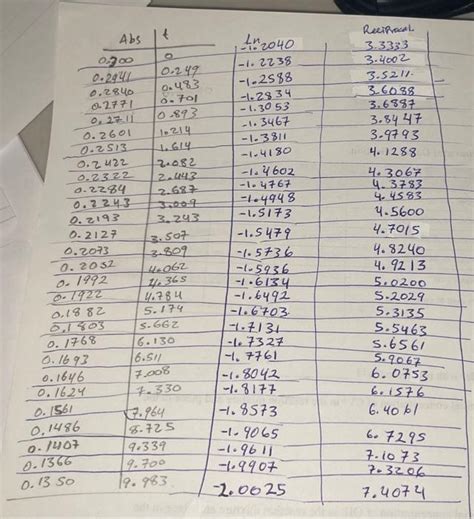 Abs t Ln Reciprocal
0.300 0 -1.2040 3.3333
0.2941 0.249 -1.2238 3.4002
0.2840 0.483 -1.2588 3.5211
0.2771 0.701 -1.2834 3.6088
0.2711 0.893 -1.3053 3.6887
0.2601 1.214 -1.3467 3.8447
0.2513 1.614 -1.3811 3.9793
0.2422 2.082 -1.4180 4.1288
0.2322 2.443 -1.4602 4.3067
0.2284 2.687 -1.4767 4.3783
0.2243 3.009 -1.4948 4.4583
0.2193 3.243 -1.5173 4.5600
0.2127 3.507 -1.5479 4.7015
0.2073 3.809 -1.5736 4.8240
0.2032 4.062 -1.5936 4.9213
0.1992 4.365 -1.6134 5.0200
0.1922 4.784 -1.6492 5.2029
0.1882 5.174 -1.6703 5.3135
0.1803 5.662 -1.7131 5.5463
0.1768 6.130 -1.7327 5.6561
0.1693 6.511 -1.7761 5.9067
0.1646 7.008 -1.8042 6.0753
0.1624 7.330 -1.8177 6.1576
0.1561 7.964 -1.8573 6.4061
0.1486 8.725 -1.9065 6.7295
0.1407 9.339 -1.9611 7.1073
0.1366 9.700 -1.9907 7.3206
0.1350 9.983 -2.0025 7.4074